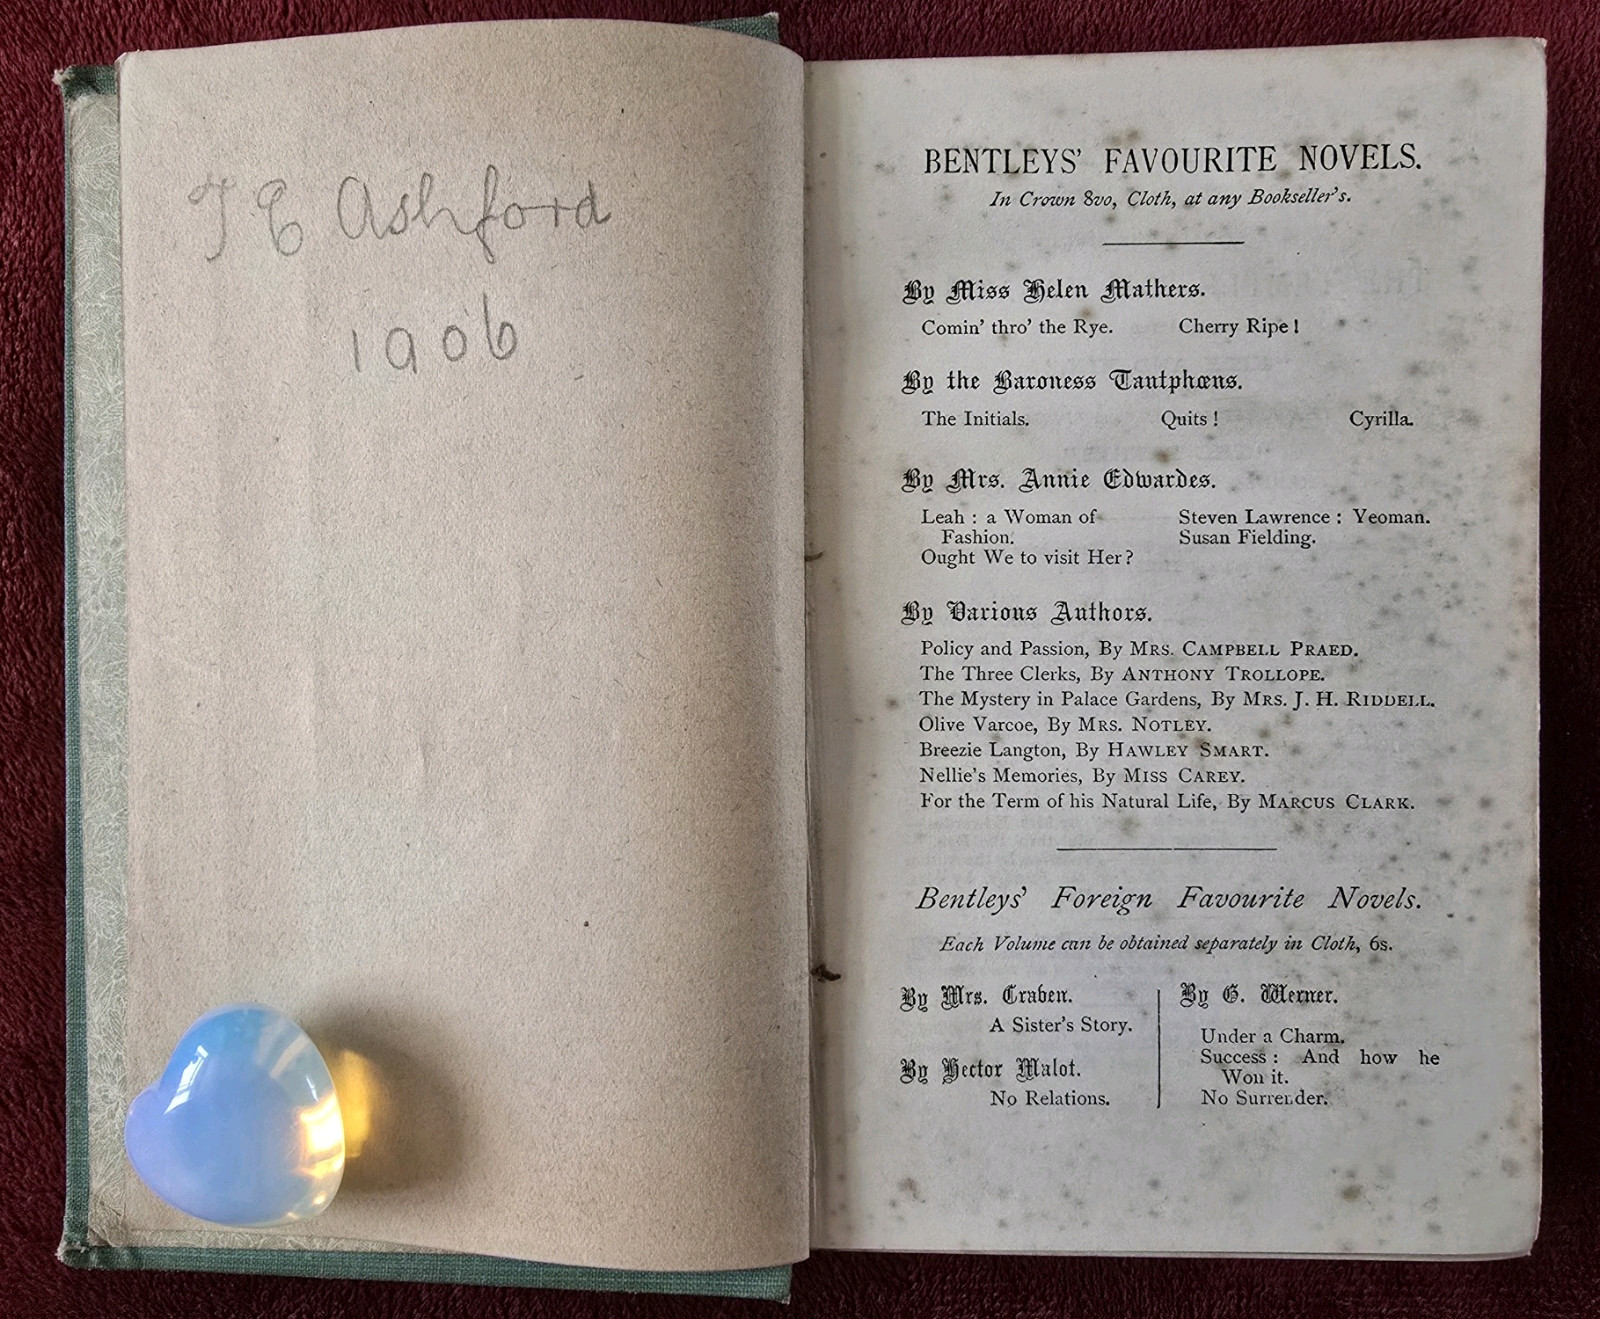 T E Ashford
1906
BENTLEYS' FAVOURITE NOVELS.
In Crown 8vo, Cloth, at any Bookseller's.
By Miss Helen Mathers.
Comin' thro' the Rye. Cherry Ripe!
By the Baroness Tautphœus.
The Initials. Quits! Cyrilla.
By Mrs. Annie Edwardes.
Leah: a Woman of
Fashion.
Ought We to visit Her?
Steven Lawrence: Yeoman.
Susan Fielding.
By Various Authors.
Policy and Passion, By MRS. CAMPBELL PRAED.
The Three Clerks, By ANTHONY TROLLOPE.
The Mystery in Palace Gardens, By MRS. J. H. RIDDELL.
Olive Varcoe, By MRS. NOTLEY.
Breezie Langton, By HAWLEY SMART.
Nellie's Memories, By MISS CAREY.
For the Term of his Natural Life, By MARCUS CLARK.
Bentleys' Foreign Favourite Novels.
Each Volume can be obtained separately in Cloth, 6s.
By Mrs. Craven.
A Sister's Story.
By Hector Malot.
No Relations.
By E. Werner.
Under a Charm.
Success: And how he
Won it.
No Surrender.